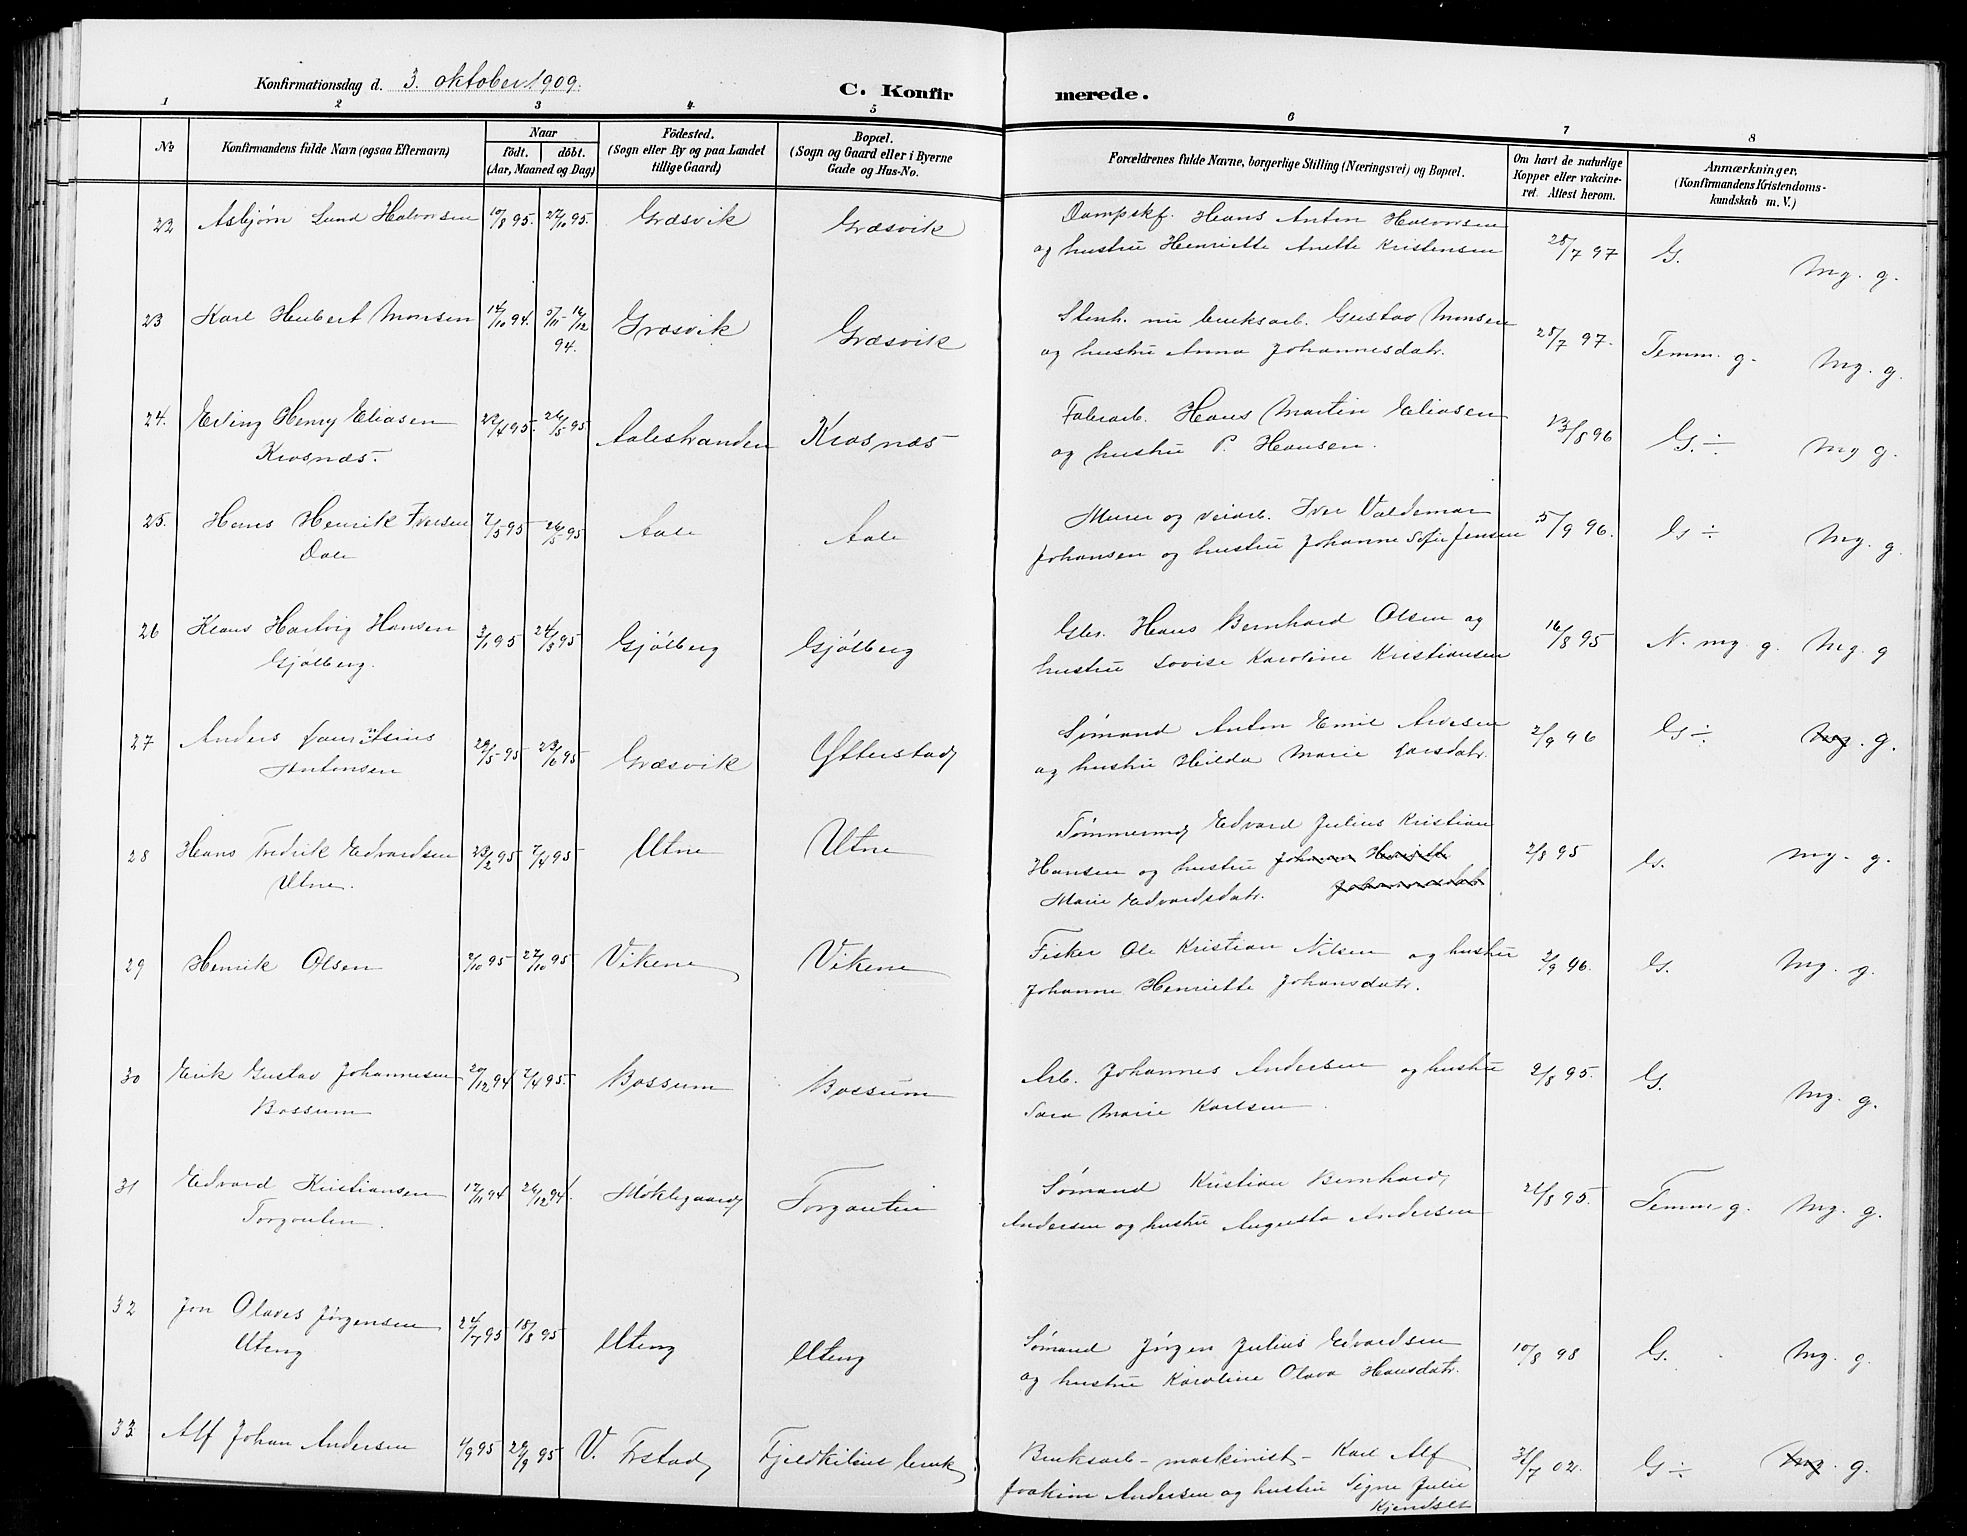 Konfirmationsdag d. 3. oktober 1909.
C. Konfirmerede.
1 2 3 4. 5 6 7 8
No
Konfirmandens fulde Navn (ogsaa Efternavn)
Naar
födt. döbt.
(Aar, Maaned og Dag)
Födested.
(Sogn eller By og paa Landet
tillige Gaard)
Bopæl.
(Sogn og Gaard eller i Byerne
Gade og Hus-No.
Forældrenes fulde Navne, borgerlige Stilling (Næringsvei) og Bopæl.
Om havt de naturlige
Kopper eller vakcine-
ret. Attest herom.
Anmærkninger,
(Konfirmandens Kristendoms-
kundskab m. V.)
22 Asbjørn Lund Halvorsen 10/8 95. 27/10 95. Græsvik Græsvik
Dampskf. Hans Anton Halvorsen
og hustru Henriette Anette Kristensen 28/7 97 G. Mg. g.
23 Karl Herbert Monsen 14/10 94. 5/11 - 16/12 94. Græsvik Græsvik
Stenh. nu bruksarb. Gustav Monsen
og hustru Anna Johannesdatr. 28/7 97. Temm. g. Mg. g.
24. Erling Henry Eliasen 22/4 95. 26/5 95 Aalestranden Krosnæs
Krosnæs.
Faberarb. Hans Martin Eliasen
og hustru P. Hansen. 13/8 96 G. ÷ Mg g.
25. Hans Henrik Iversen 7/5 95 26/5 95 Aale Aale
Dale
Murer og veiarb. Iver Valdemar
Johansen og hustru Johanne Sofie Jensen 5/9 96. G ÷ Mg. g.
26 Klaus Hartvig Hansen 3/1 95 24/3 95 Gjølberg Gjølberg
Gjølberg.
Gbr. Hans Bernhard Olsen og
hustru Lovise Karoline Kristiansen 16/8 95 N. mg. g. Mg. g
27 Anders Lauritsius 29/5 95 23/6 95 Græsvik Efterstad
Antonsen
Sømand Anton Emil Andersen
og hustru Hilda Marie Larsdatr. 2/9 96 G ÷ Mg. g.
28 Hans Fredrik Edvardsen 23/2 95 7/4 95 Utne Utne
Utne.
Tømmermd Edvard Julius Kristian
Hansen og hustru Johanne Henriette
Marie Edvardsdatr. Johannesdatr 2/8 95 G. Mg. g.
29 Henrik Olsen 2/10 95 27/10 95 Vikene Vikene
Fisker Ole Kristian Nilsen og hustru
Johanne Henriette Johansdatr. 2/9 96. G. Mg. g.
30 Erik Gustav Johannesen 20/12 94 7/4 95. Bossum Bossum
Bossum
Arb. Johannes Andersen og hustru
Sara Marie Karlsen. 2/8 95. G. Mg. g.
31 Edvard Kristiansen 17/11 94 26/12 94. Møklegaard Torgauten
Torgauten.
Sømand Kristian Bernhard
Andersen og hustru Augusta Andersen 21/8 95. Temm g. Mg. g.
32 Jon Olaves Jørgensen 24/7 95 18/8 95 Uteng Uteng
Uteng
Sømand Jørgen Julius Edvardsen
og hustru Karoline Olava Hansdatr. 10/8 98 G. Mg. g.
33 Alf Johan Andersen 4/9 95 29/9 95 V. Frstad Fjeldkilens bruk
Bruksarb - maskinist - Karl Alf
Joakim Andersen og hustru Signe Julie
Kjendsli 31/7 02. G ÷ Mg. g.